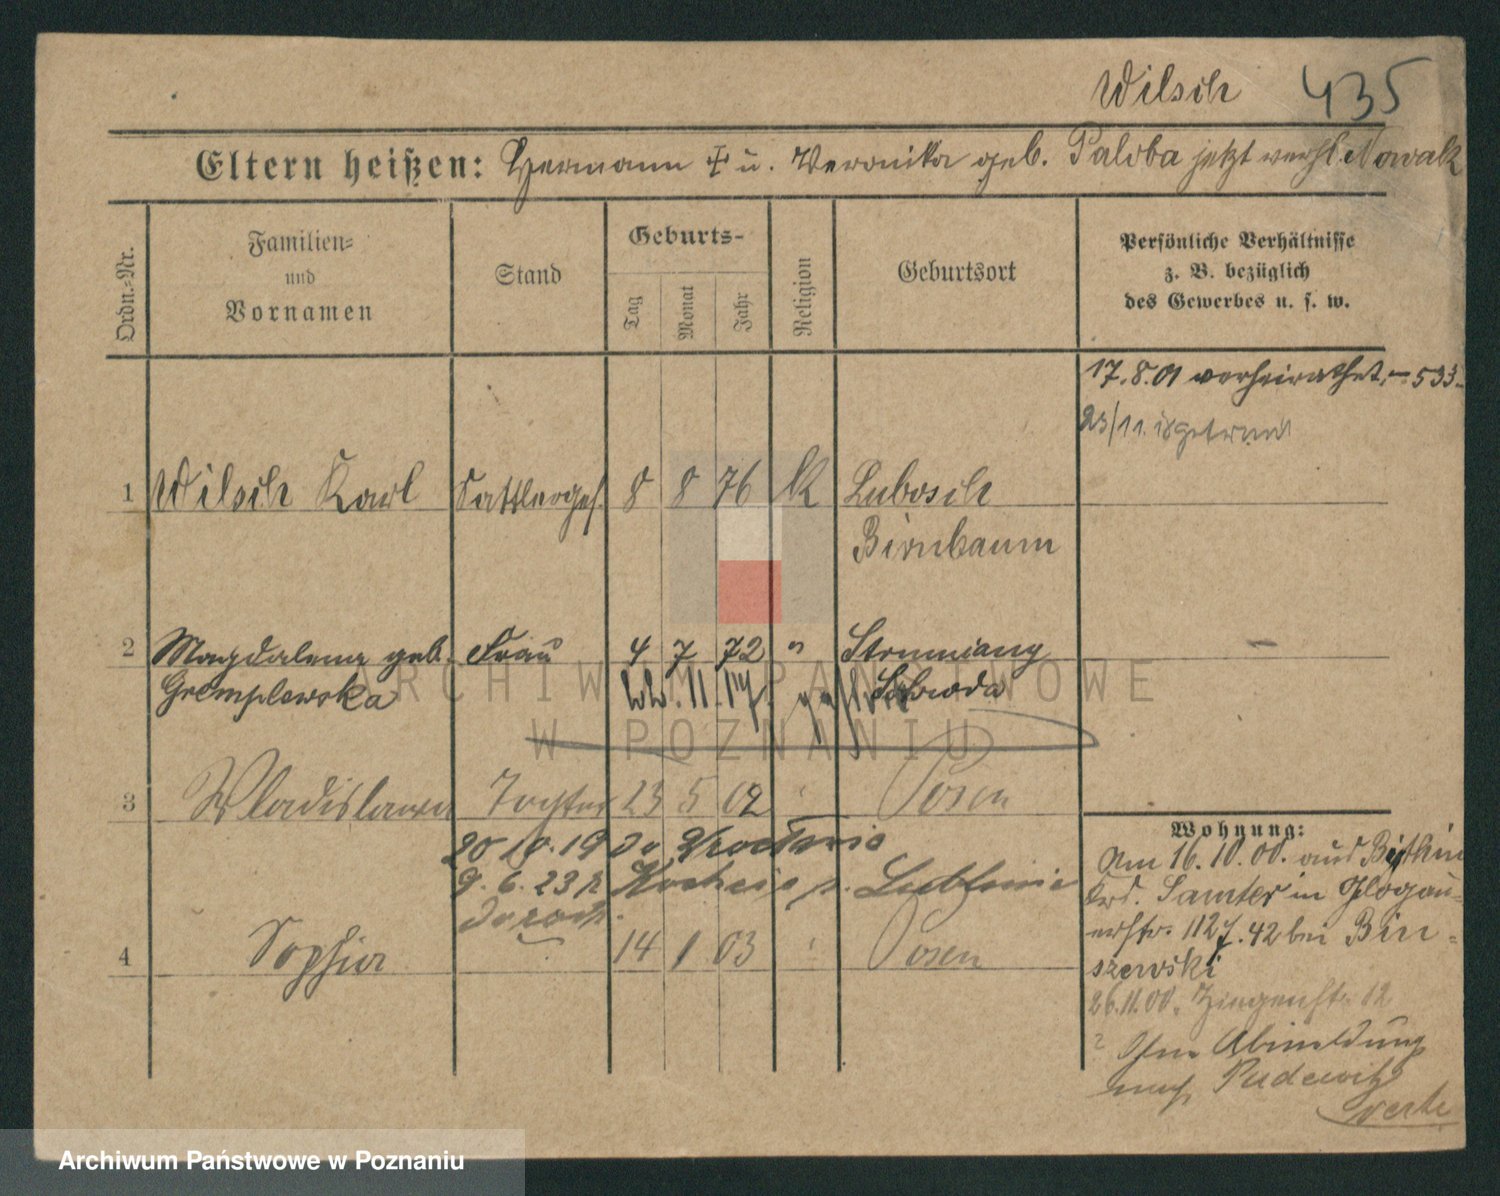 Wilsch 435
Eltern heißen: Hermann † u. Veronika geb. Paloba jetzt vereh. Nowak
Ordn.-Nr.
Familien-
und
Vornamen
Stand
Geburts-
Tag
Monat
Jahr
Religion
Geburtsort
Persönliche Verhältnisse
z. B. bezüglich
des Gewerbes u. s. w.
17.8.01 verheirathet. – 533.
23/11.
1 Wilsch Karl Sattlerges. 8 8 76 K Lubosch
Birnbaum
2 Magdalena geb. Frau 4 7 72 " Strumiany
Gremplewska Schroda
22. 11. 17. gest.
3 Wladislawa Tochter 23 5 02 " Posen
20 10. 19
9. 6. 23
4 Sophia 14 1 03 " Posen
Wohnung:
Am 16.10.00. aus
Krd. Samter in Glogau-
erstr. 112 42 bei Bin-
szewski
26.11.00. Ziegenstr. 12
? Ohne Abmeldung
nach Pudewitz
verte
ARCHIWUM PAŃSTWOWE
W POZNANIU
Archiwum Państwowe w Poznaniu